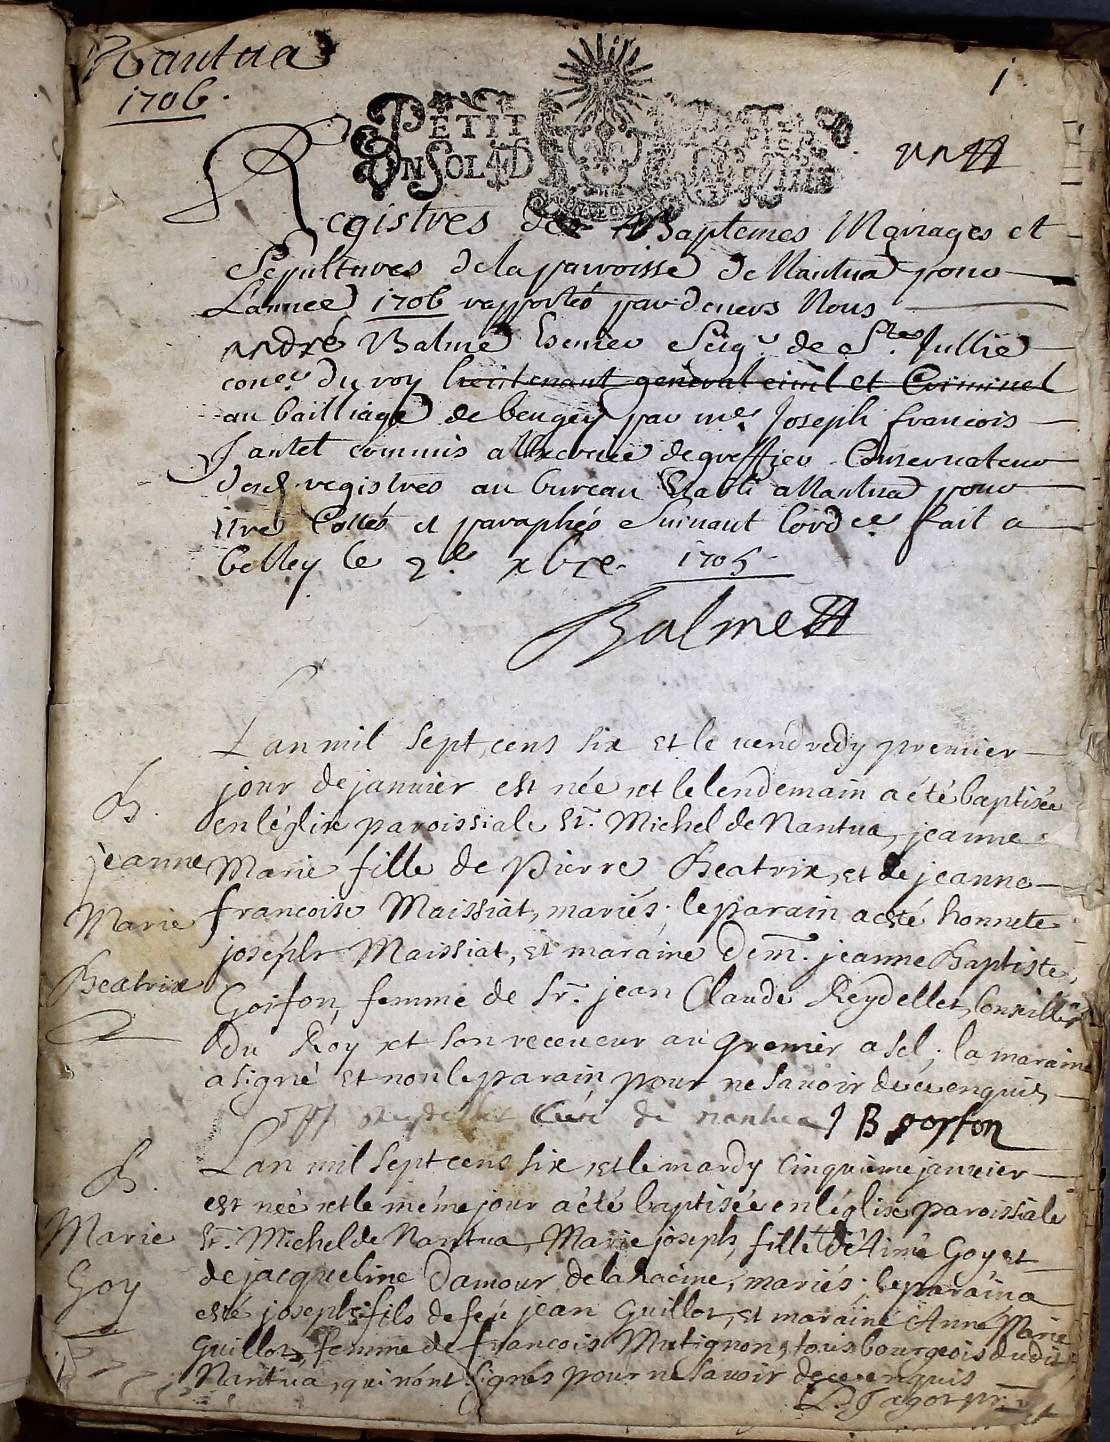 Nantua
1706.
1
PETIT PAPIER
UN SOL 4D
Registres des Baptemes Mariages et
Sepultures de la parroisse de Nantua pour
L'annee 1706 rapportés pardevers Nous
André Balme Escuier Seigr de Ste Jullie
coner du roy lieutenant general civil et Criminel
au bailliage de beugey par me Joseph francois
Jantet commis a l'exercice de greffier Conservateur
desd registres au bureau Etabli a Nantua pour
Etre Cottés et paraphés Suivant l'ord ce fait a
belley le 2e xbre 1705
Balme
L'an mil sept cens six et le vendredy premier
jour de janvier est née et le lendemain a été baptisée
B. en l'église paroissiale St. Michel de Nantua, jeanne
jeanne Marie fille de Pierre Beatrix, et de jeanne
Marie francoise Maissiat, mariés; le parain a esté honnete
joseph Maissiat, et maraine dem. jeanne Baptiste
Beatrix Gorfon, femme de Sr. jean Claude Reydellet, Conseiller
du Roy et son receveur au grenier a sel; la maraine
a signé et non le parain pour ne savoir de ce enquis
Reydellet Curé de nantua J B gorfon
B. L'an mil sept cens six, et le mardy cinquieme janvier
est née et le méme jour a été baptisée en l'église paroissiale
Marie St. Michel de Nantua, Marie joseph, fille de Aimé Goy et
Goy de jacqueline Damour de la Racine, mariés; le parain a
esté joseph fils de feu jean Guillot, et maraine Anne Marie
Guillot, femme de francois Mutignon, tous bourgeois dudit
Nantua, qui n'ont signés pour ne savoir de ce enquis